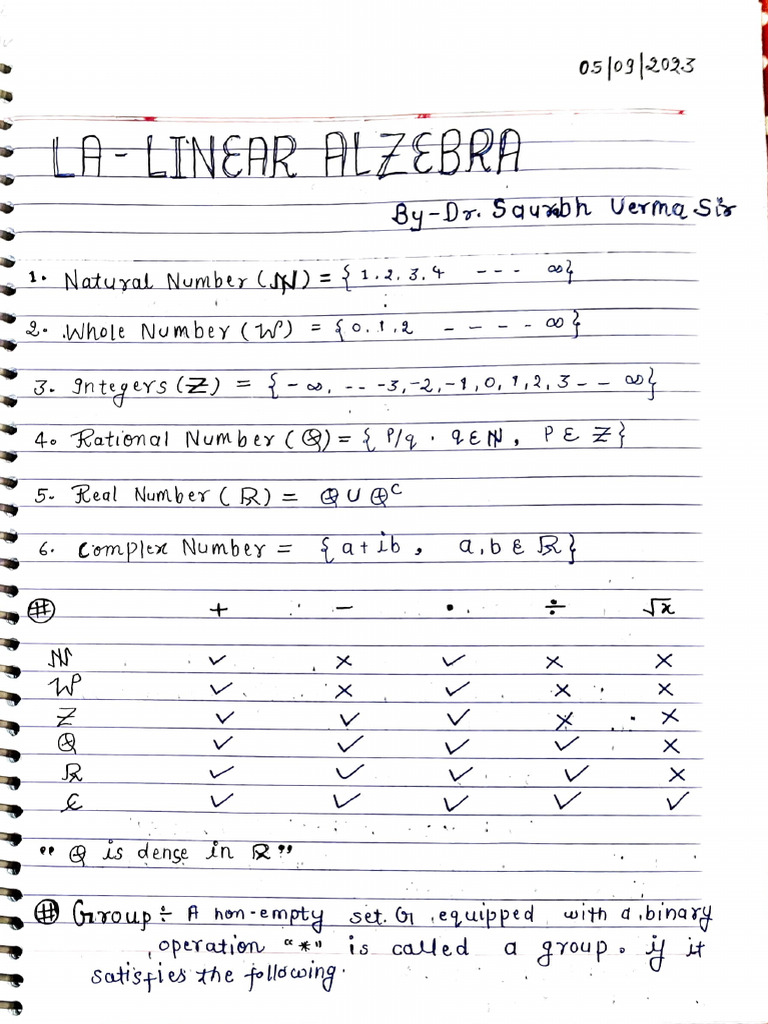 05/09/2023
LA - LINEAR ALZEBRA
By-Dr. Saurabh Verma Sir
1. Natural Number (ℕ) = { 1.2.3.4 --- ∞}
2. Whole Number (W) = { 0.1.2 - - - - ∞}
3. Integers (Z) = { -∞, -- -3,-2,-1,0,1,2,3 -- ∞}
4. Rational Number (Q) = { P/q . q ∈ ℕ, P ∈ Z}
5. Real Number (ℝ) = Q ∪ Q^C
6. Complex Number = {a+ib, a,b ∈ ℝ}
# + - • ÷ √x
ℕ ✓ × ✓ × ×
W ✓ × ✓ × ×
Z ✓ ✓ ✓ × ×
Q ✓ ✓ ✓ ✓ ×
ℝ ✓ ✓ ✓ ✓ ×
ℂ ✓ ✓ ✓ ✓ ✓
"Q is dense in ℝ"
# Group ÷ A non-empty set G equipped with a binary
operation "*" is called a group. if it
satisfies the following.